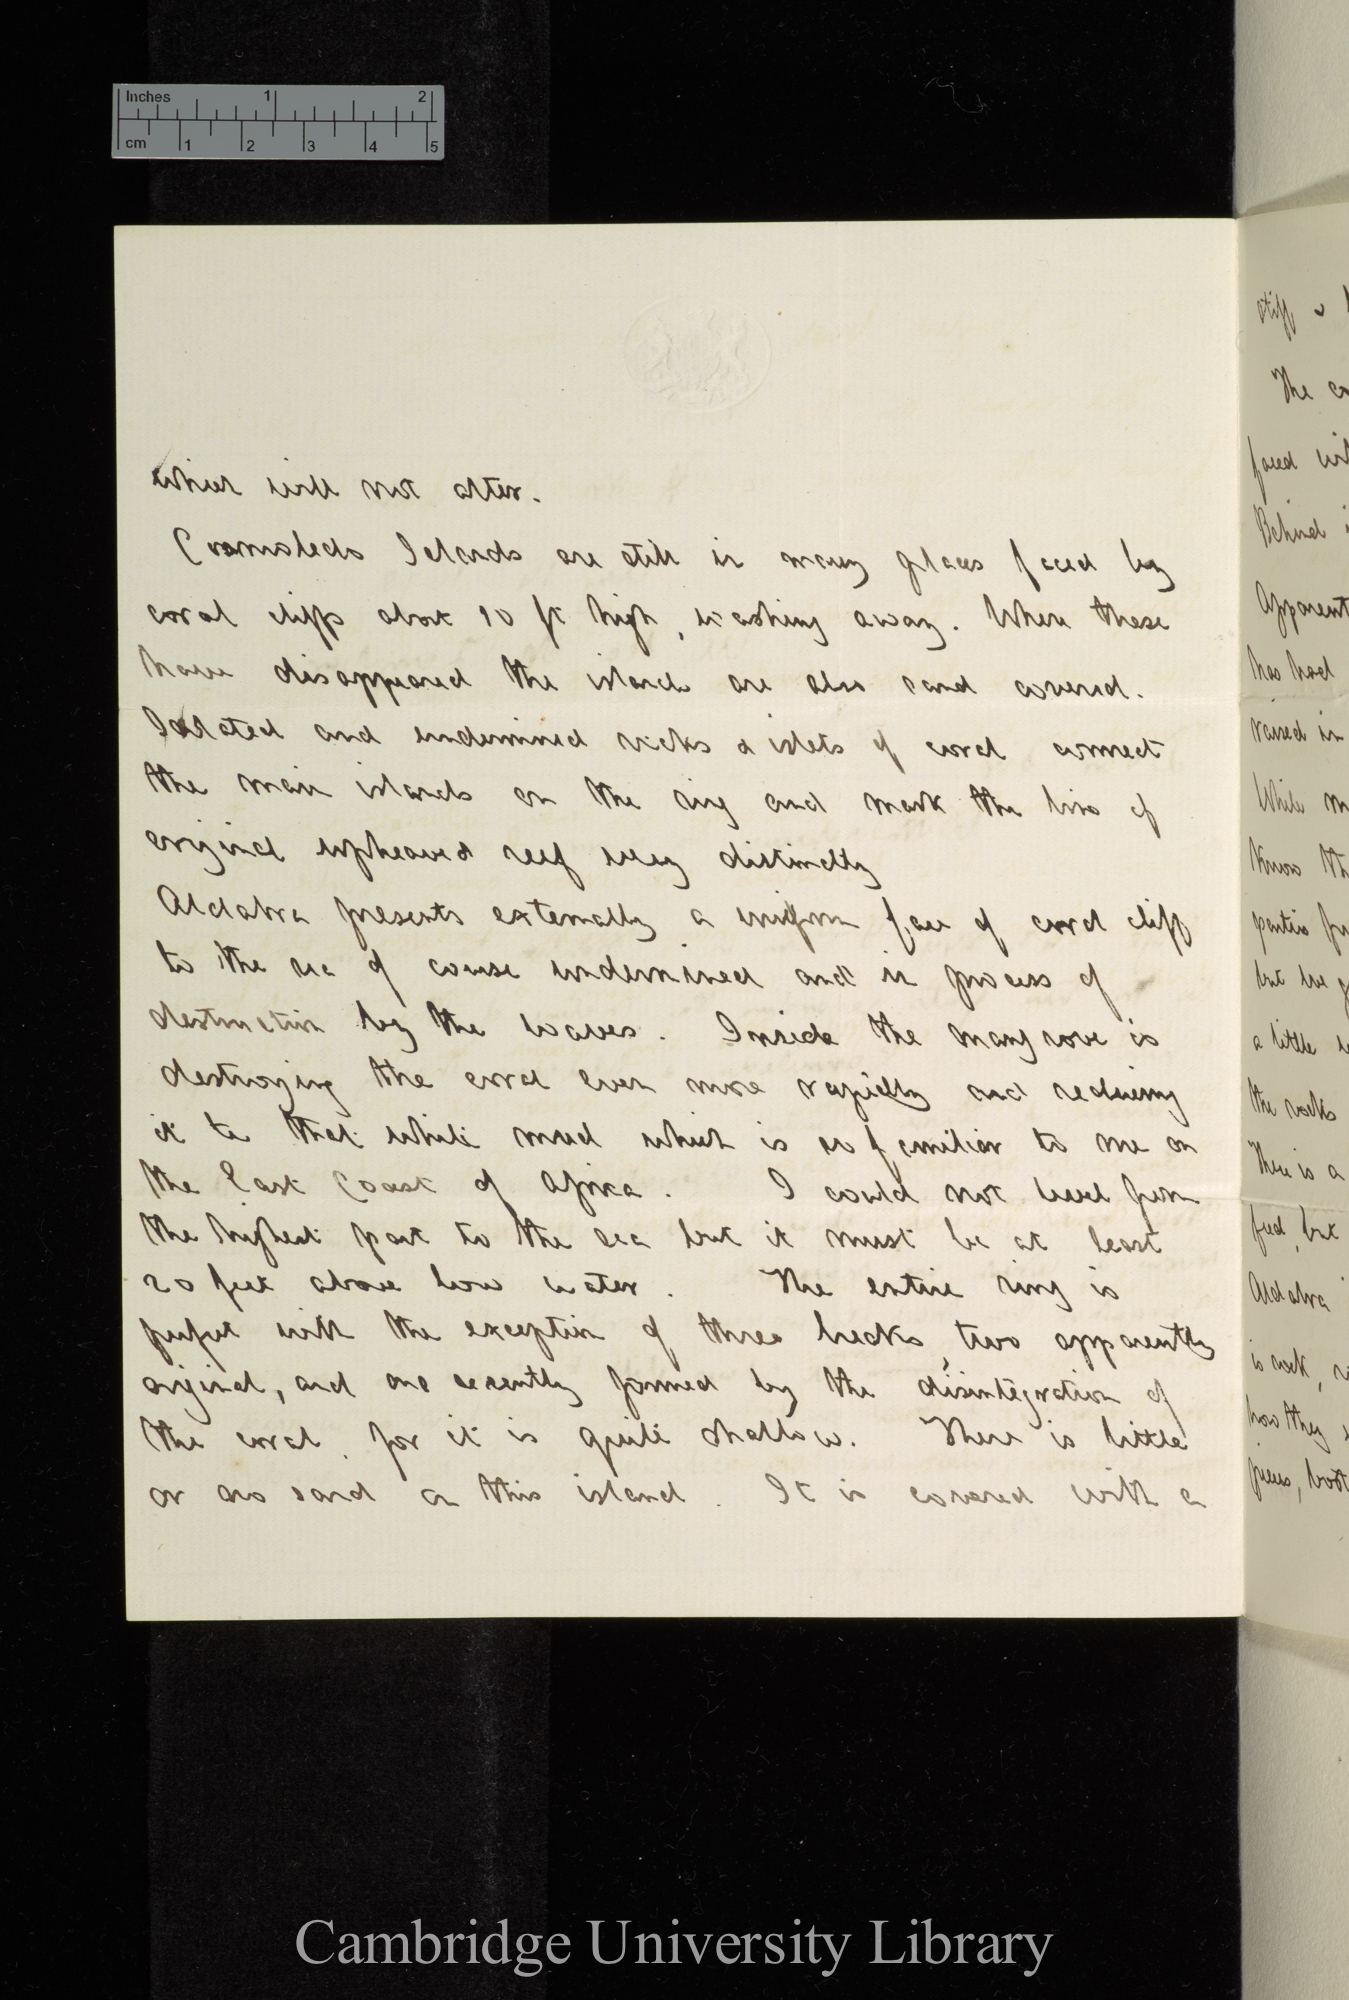 Inches 1 2
cm 1 2 3 4 5
which will not alter.
Cosmoledo Islands are still in many places faced by
coral cliffs about 10 ft high, washing away. When these
have disappeared the islands are also sand covered.
Isolated and undermined rocks & islets of coral connect
the main islands on the ring and mark the line of
original upheaved reef very distinctly
Aldabra presents externally a uniform face of coral cliff
to the sea of course undermined and in process of
destruction by the waves. Inside the mangrove is
destroying the coral even more rapidly and reducing
it to that white mud which is so familiar to me on
the East Coast of Africa. I could not level from
the highest part to the sea but it must be at least
20 feet above low water. The entire ring is
perfect with the exception of three breaks, two apparently
original, and one recently formed by the disintegration of
the coral, for it is quite shallow. There is little
or no sand on this island. It is covered with a
stiff &
The
faced
Behind
Apparent
has had
raised in
While
know
parties
but we
a little
the rocks
There is a
feed, but
Aldabra
is rock,
how they
pieces, boot
Cambridge University Library